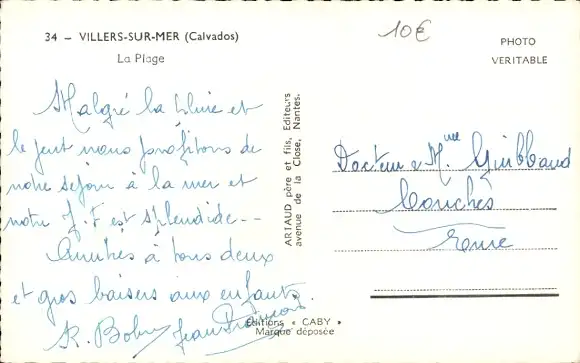 34 - VILLERS-SUR-MER (Calvados)
La Plage
10€
PHOTO
VERITABLE
Malgré la pluie et
le vent nous profitons de
notre séjour à la mer et
notre J.F est splendide --
Amitiés à tous deux
et gros baisers aux enfants.
ARTAUD père et fils, Editeurs
avenue de la Close, Nantes.
Docteur & Mme
Conches
Eure
Editions « CABY »
Marque déposée